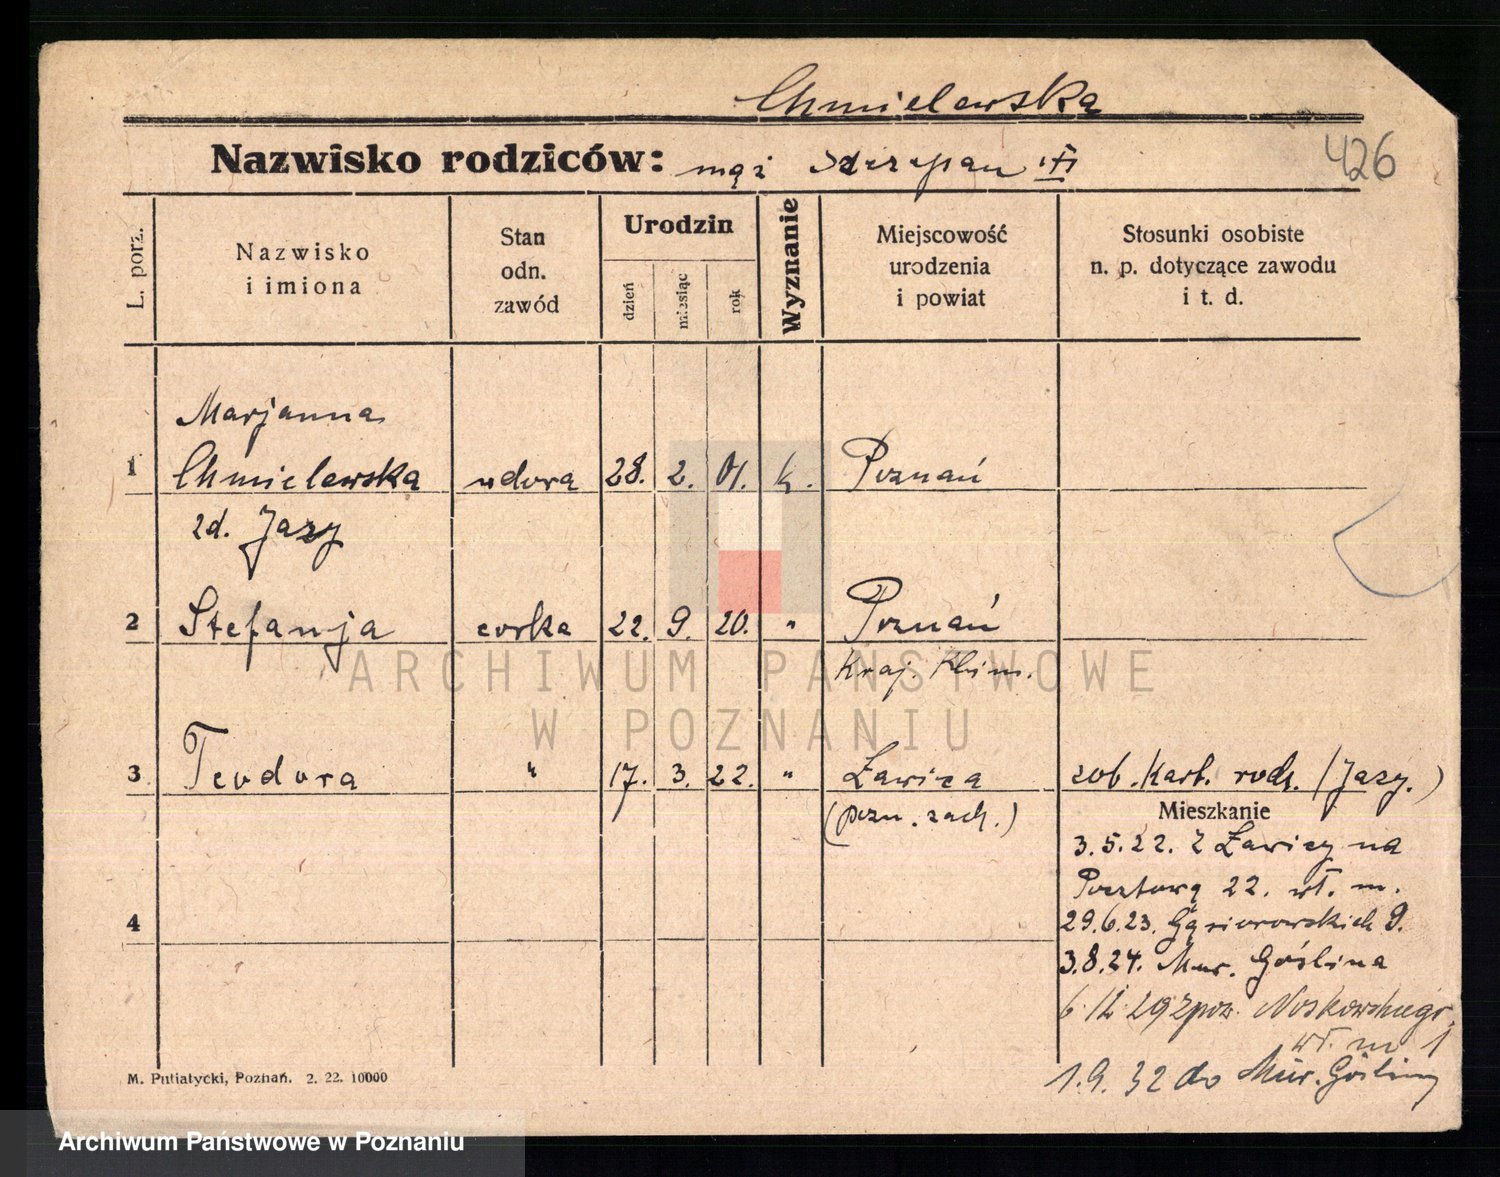 Chmielewska
Nazwisko rodziców: mąż Szczepan
426
L. porz.
Nazwisko
i imiona
Stan
odn.
zawód
Urodzin
dzień
miesiąc
rok
Wyznanie
Miejscowość
urodzenia
i powiat
Stosunki osobiste
n. p. dotyczące zawodu
i t. d.
Marjanna
1 Chmielewska wdowa 28. 2. 01. k. Poznań
zd. Jazy
2 Stefanja corka 22. 9. 20. " Poznań
Kraj. Klin.
3 Teodora " 17. 3. 22. " Ławica zob. Kart. rodz. (Jazy.)
(pozn. zach.)
Mieszkanie
3.5.22. Z Ławicy na
Pocztową 22. wł. m.
29.6.23. Gąsiorowskich 9.
4
3.8.24. Mur. Goślina
6 12 29 zpow. Noskowskiego
wł. m 1
1.9.32 do Mur. Gośliny
M. Putiatycki, Poznań. 2. 22. 10000
ARCHIWUM PAŃSTWOWE
W POZNANIU
Archiwum Państwowe w Poznaniu